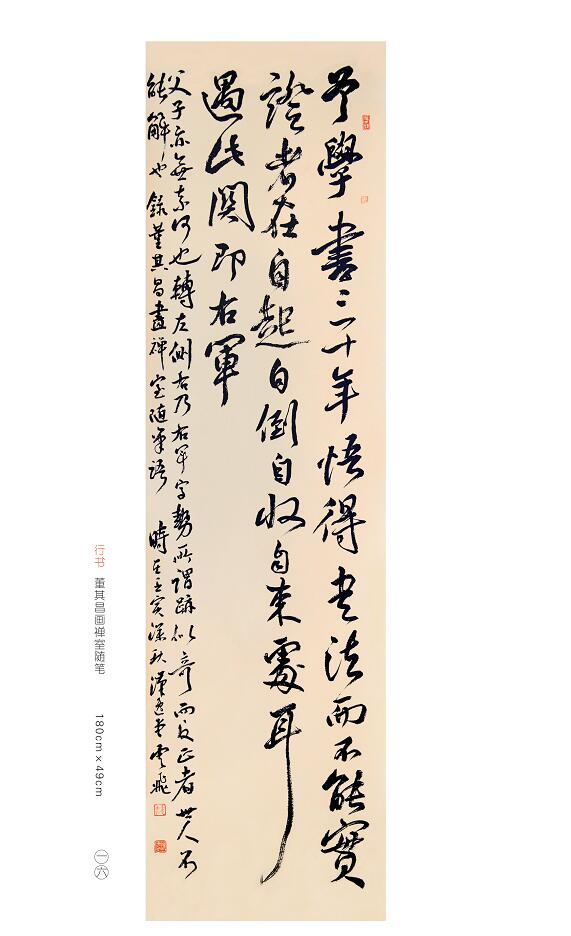 予學書三十年悟得书法而不能實
證者在自起自倒自收自束處耳
過此関即右軍
父子亦無奈何也轉左側右乃右軍字勢所謂跡似奇而反正者世人不
能解也 錄董其昌畫禅室隨筆語 時在壬寅深秋 雲飛
行书 董其昌画禅室随笔 180cm×49cm
一六